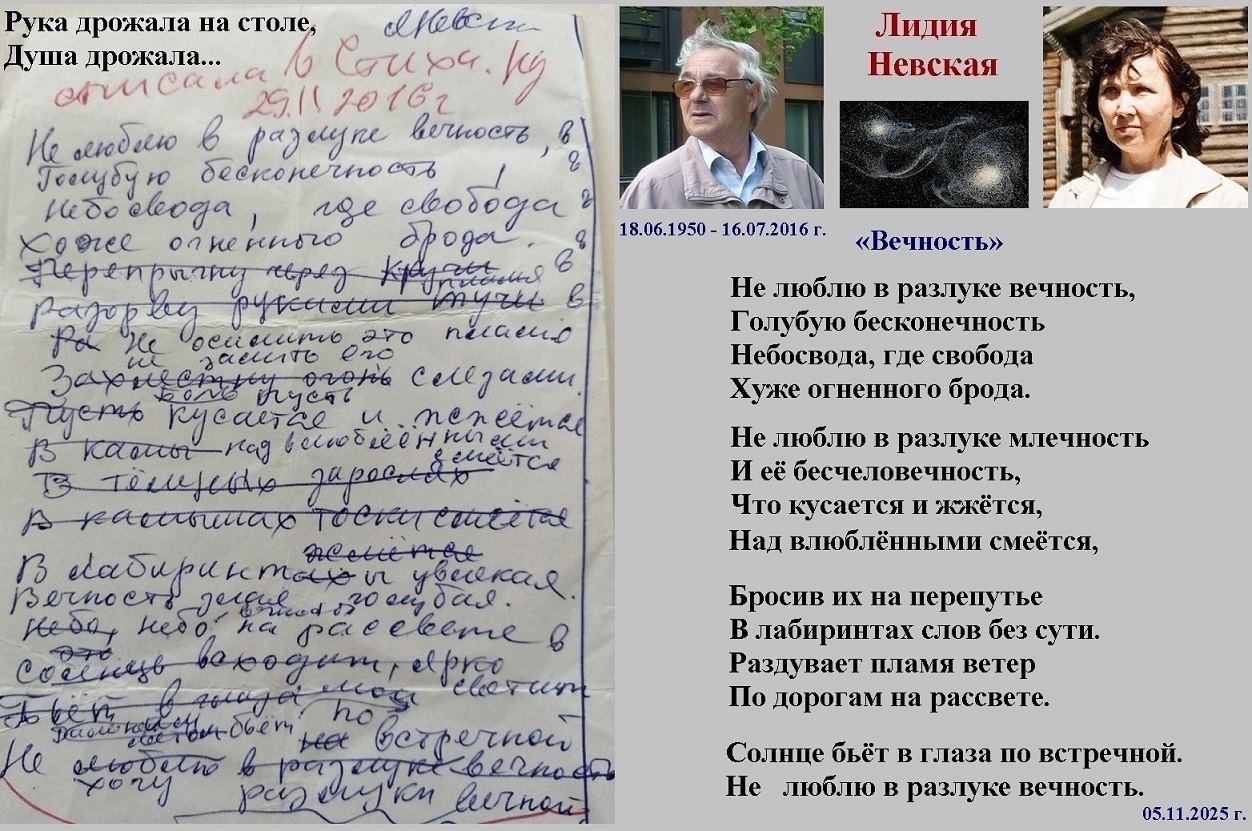 Рука дрожала на столе,
Душа дрожала...
списала в Стиха. ру
29.11 2016 г
Не люблю в разлуке вечность,
Голубую бесконечность,
Небосвода, где свобода
Хуже огненного брода.
Перепрычну через кручи
пламя
Разорву руками тучи
Не осилить это пламя
не залить его
слезами.
боль пусть
Пусть кусается и жжётся
над влюблёнными
смеётся
В тёмных зарослях
В камышах тоски смеётся
жжётся
В лабиринты увлекая.
Вечность злая голубая.
небо на рассвете
Солнце входит, ярко
Бьёт в глаза светит
бьёт по
на встречной
Не люблю в разлуке вечность
хочу разлуки вечной
Лидия
Невская
18.06.1950 - 16.07.2016 г.
«Вечность»
Не люблю в разлуке вечность,
Голубую бесконечность
Небосвода, где свобода
Хуже огненного брода.
Не люблю в разлуке млечность
И её бесчеловечность,
Что кусается и жжётся,
Над влюблёнными смеётся,
Бросив их на перепутье
В лабиринтах слов без сути.
Раздувает пламя ветер
По дорогам на рассвете.
Солнце бьёт в глаза по встречной.
Не люблю в разлуке вечность.
05.11.2025 г.